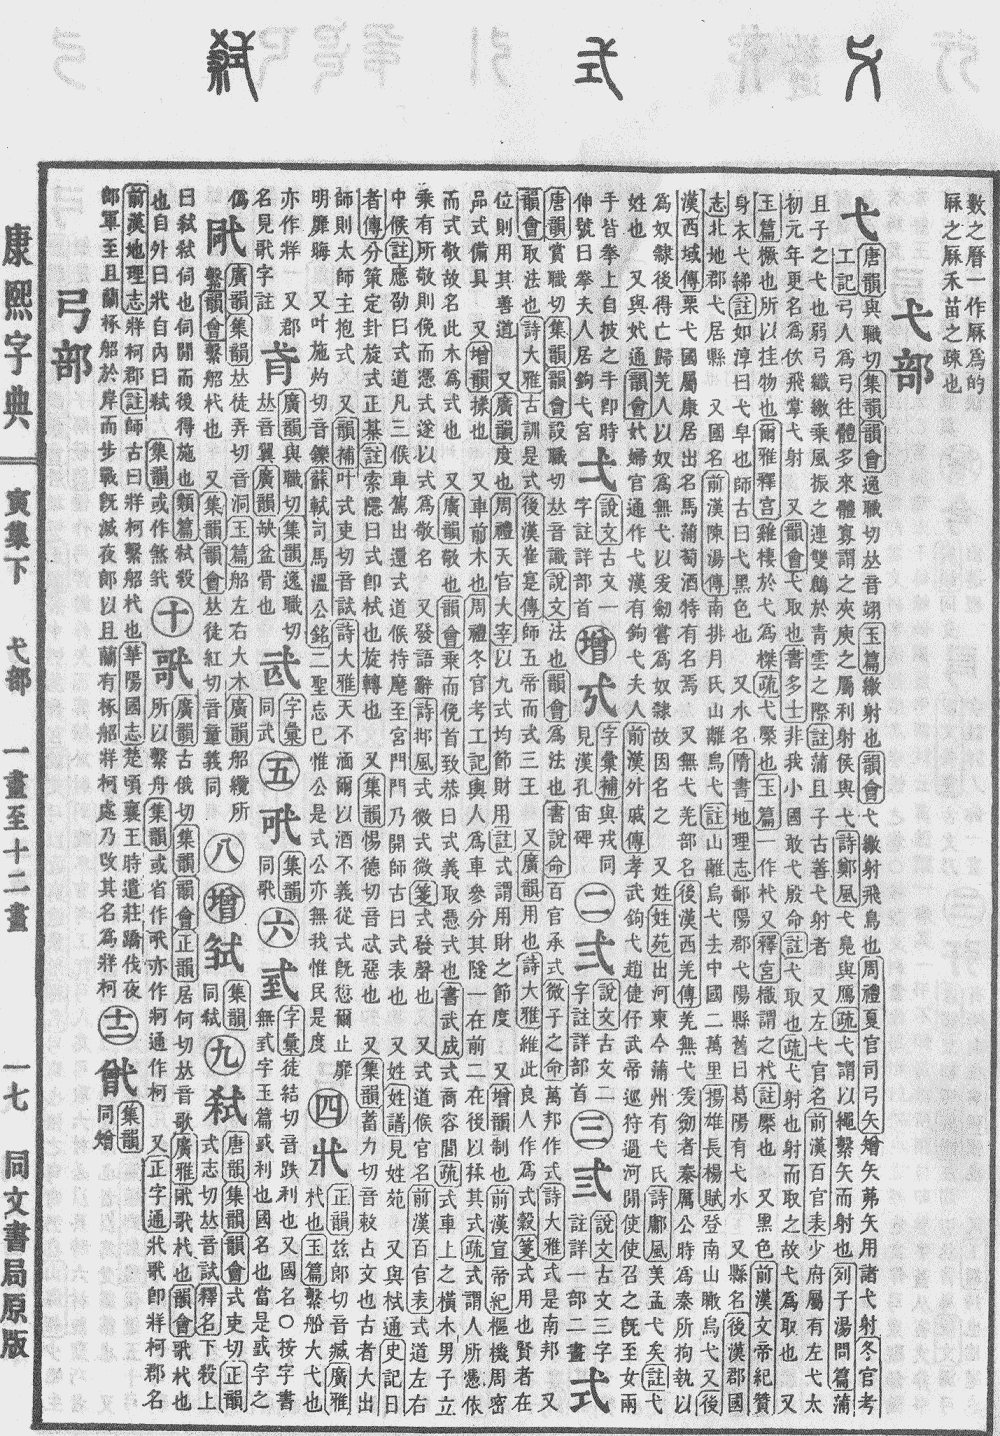 弋 式 弒
數之曆一作厤爲的
厤之厤禾苗之疎也
弋部
弋 唐韻與職切集韻韻會逸職切𠀤音翊玉篇繳射也韻會弋繳射飛鳥也周禮夏官司弓矢矰矢茀矢用諸弋射冬官考
工記弓人爲弓往體多來體寡謂之夾庾之屬利射侯與弋詩鄭風弋鳧與鴈疏弋謂以繩繫矢而射也列子湯問篇蒲
且子之弋也弱弓纖繳乘風振之連雙鶬於靑雲之際註蒲且子古善弋射者 又左弋官名前漢百官表少府屬有左弋太
初元年更名爲佽飛掌弋射 又韻會弋取也書多士非我小國敢弋殷命註弋取也疏弋射也射而取之故弋爲取也 又
玉篇橛也所以挂物也爾雅釋宮雞棲於弋爲榤疏弋橜也玉篇一作杙又釋宮樴謂之杙註橜也 又黑色前漢文帝紀贊
身衣弋綈註如淳曰弋皁也師古曰弋黑色也 又水名隋書地理志鄱陽郡弋陽縣舊曰葛陽有弋水 又縣名後漢郡國
志北地郡弋居縣 又國名前漢陳湯傳南排月氏山離烏弋註山離烏弋去中國二萬里揚雄長楊賦登南山瞰烏弋又後
漢西域傳栗弋國屬康居出名馬蒲萄酒特有名焉 又無弋羌部名後漢西羌傳羌無弋爰劒者秦厲公時爲秦所拘執以
爲奴隸後得亡歸羌人以奴爲無弋以爰劒嘗爲奴隸故因名之 又姓姓苑出河東今蒲州有弋氏詩鄘風美孟弋矣註弋
姓也 又與㚤通韻會㚤婦官通作弋漢有鉤弋夫人前漢外戚傳孝武鉤弋趙倢伃武帝巡狩過河閒使使召之旣至女兩
手皆拳上自披之手卽時
伸號曰拳夫人居鉤弋宮
弌 說文古文一
字註詳部首
增 𢍺 字彙補與戎同
見漢孔宙碑
二 弍 說文古文二
字註詳部首
三 弎 說文古文三字
註詳一部二畫
式
唐韻賞職切集韻韻會設職切𠀤音識說文法也韻會爲法也書說命百官承式微子之命萬邦作式詩大雅式是南邦 又
韻會取法也詩大雅古訓是式後漢崔寔傳師五帝而式三王 又廣韻用也詩大雅維此良人作爲式穀箋式用也賢者在
位則用其善道 又廣韻度也周禮天官大宰以九式均節財用註式謂用財之節度 又增韻制也前漢宣帝紀樞機周密
品式備具 又增韻㨾也 又車前木也周禮冬官考工記輿人爲車參分其隧一在前二在後以揉其式疏式謂人所憑依
而式敬故名此木爲式也 又廣韻敬也韻會乘而俛首致恭曰式義取憑式也書武成式商容閭疏式車上之橫木男子立
乘有所敬則俛而憑式遂以式爲敬名 又發語辭詩邶風式微式微箋式發聲也 又式道候官名前漢百官表式道左右
中候註應劭曰式道凡三候車駕出還式道候持麾至宮門門乃開師古曰式表也 又姓姓譜見姓苑 又與栻通史記日
者傳分策定卦旋式正棊註索隱曰式卽栻也旋轉也 又集韻惕德切音忒惡也 又集韻蓄力切音敕占文也古者大出
師則太師主抱式 又韻補叶式吏切音試詩大雅天不湎爾以酒不義從式旣愆爾止靡
明靡晦 又叶施灼切音鑠蘇軾司馬溫公銘二聖忘己惟公是式公亦無我惟民是度
四 𢍼 正韻茲郎切音臧廣雅
杙也玉篇繫船大弋也
亦作牂 一 又郡
名見𢎄字註
𢍿 廣韻與職切集韻逸職切
𠀤音翼廣韻缺盆骨也
字彙
同武
五
集韻
同𢎄
六 字彙徒結切音跌利也又國名○按字書
無字玉篇或利也國名也當是或字之
爲
廣韻集韻𠀤徒弄切音洞玉篇船左右大木廣韻船纜所
繫韻會繫船杙也 又集韻韻會𠀤徒紅切音童義同
八 增 弑 集韻
同弒
九 弒 唐韻集韻韻會式吏切正韻
式志切𠀤音試釋名下殺上
曰弒弒伺也伺閒而後得施也類篇弒殺
也自外曰戕自內曰弒 集韻或作煞
十 𢎄 廣韻古俄切集韻韻會正韻居何切𠀤音歌廣雅𢎄杙也韻會𢎄杙也
所以繫舟集韻或省作亦作牁通作柯 又正字通𢎄卽牂柯郡名
前漢地理志牂柯郡註師古曰牂柯繫船杙也華陽國志楚頃襄王時遣莊蹻伐夜
郎軍至且蘭椓船於岸而步戰旣滅夜郎以且蘭有椓船牂柯處乃改其名爲牂柯
十二 集韻
同矰
弓部
康熙字典 寅集下 弋部 一畫至十二畫 一七 同文書局原版